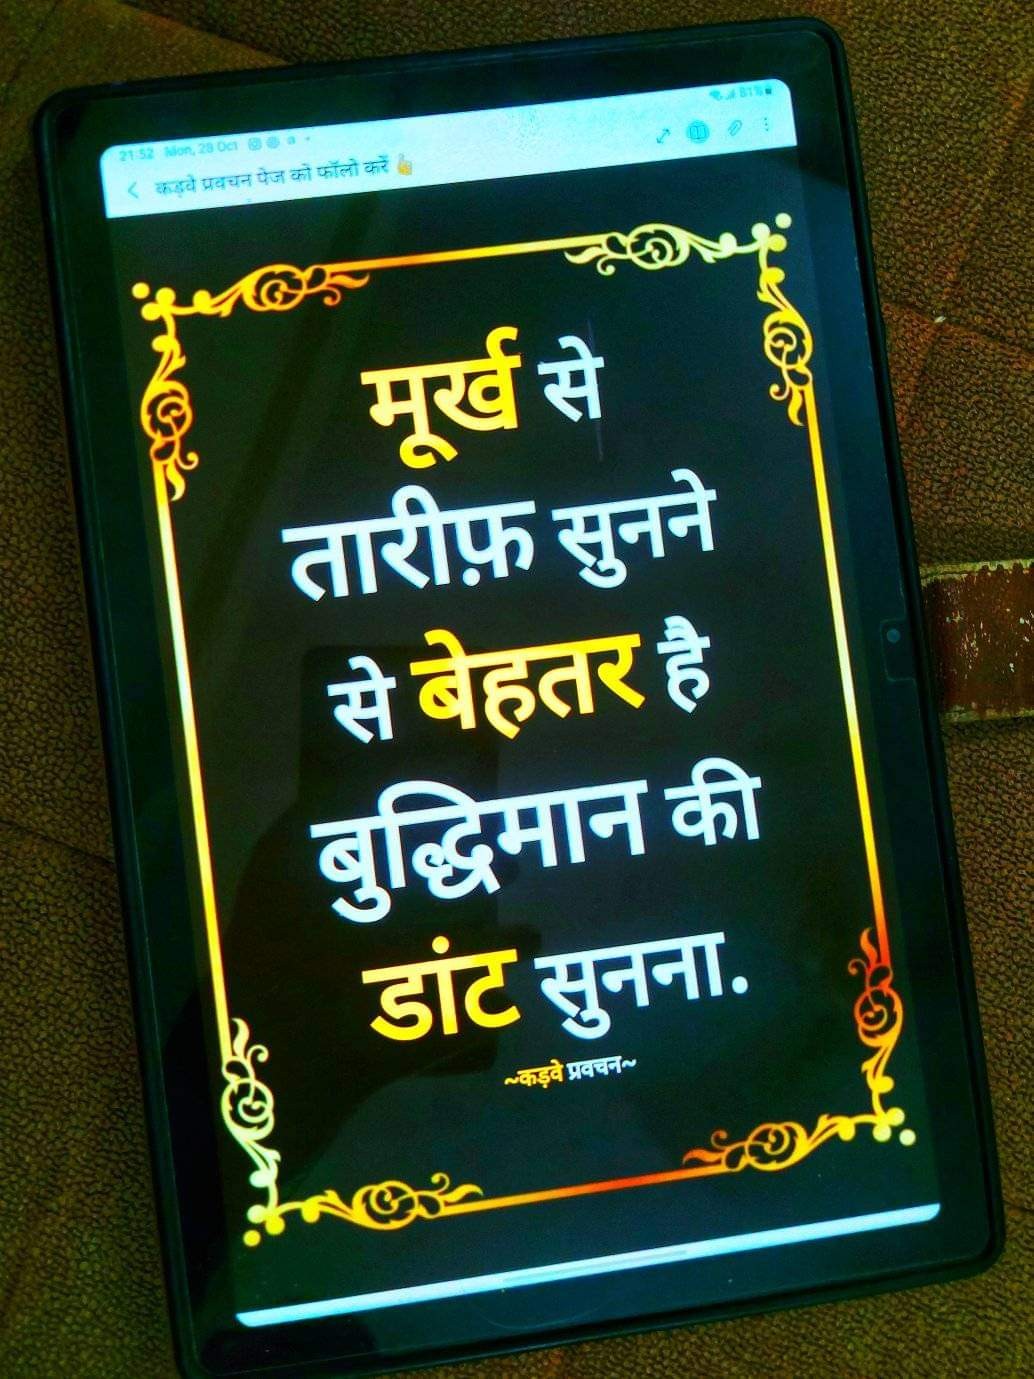 21:52 Mon, 28 Oct 81%
कड़वे प्रवचन पेज को फॉलो करें
मूर्ख से
तारीफ़ सुनने
से बेहतर है
बुद्धिमान की
डांट सुनना.
~कड़वे प्रवचन~